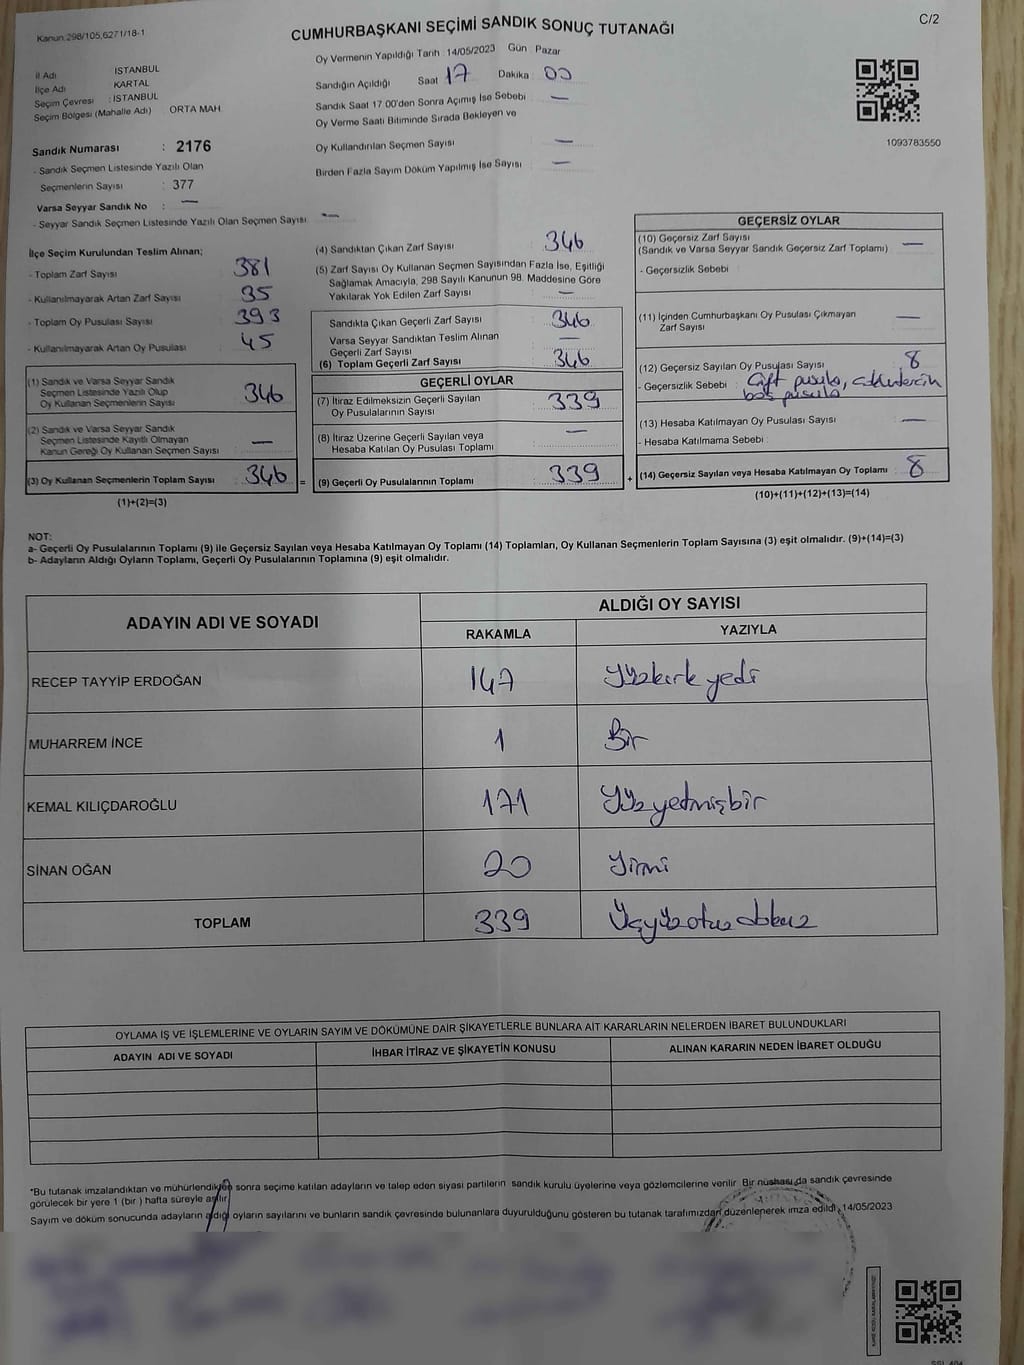 Kanun:298/105,6271/18-1
CUMHURBAŞKANI SEÇİMİ SANDIK SONUÇ TUTANAĞI
C/2
İl Adı İSTANBUL
İlçe Adı KARTAL
Seçim Çevresi : İSTANBUL
Seçim Bölgesi (Mahalle Adı) ORTA MAH
Oy Vermenin Yapıldığı Tarih 14/05/2023 Gün Pazar
Sandığın Açıldığı Saat 17 Dakika 00
Sandık Saat 17 00'den Sonra Açımış İse Sebebi —
Oy Verme Saati Bitiminde Sırada Bekleyen ve
Oy Kullandırılan Seçmen Sayısı —
Birden Fazla Sayım Döküm Yapılmış İse Sayısı —
1093783550
Sandık Numarası : 2176
- Sandık Seçmen Listesinde Yazılı Olan
Seçmenlerin Sayısı : 377
Varsa Seyyar Sandık No : —
- Seyyar Sandık Seçmen Listesinde Yazılı Olan Seçmen Sayısı —
İlçe Seçim Kurulundan Teslim Alınan;
- Toplam Zarf Sayısı 381
- Kullanılmayarak Artan Zarf Sayısı 35
- Toplam Oy Pusulası Sayısı 393
- Kullanılmayarak Artan Oy Pusulası 45
(1) Sandık ve Varsa Seyyar Sandık
Seçmen Listesinde Yazılı Olup
Oy Kullanan Seçmenlerin Sayısı 346
(2) Sandık ve Varsa Seyyar Sandık
Seçmen Listesinde Kayıtlı Olmayan
Kanun Gereği Oy Kullanan Seçmen Sayısı —
(3) Oy Kullanan Seçmenlerin Toplam Sayısı 346 =
(1)+(2)=(3)
(4) Sandıktan Çıkan Zarf Sayısı 346
(5) Zarf Sayısı Oy Kullanan Seçmen Sayısından Fazla İse, Eşitliği
Sağlamak Amacıyla, 298 Sayılı Kanunun 98. Maddesine Göre
Yakılarak Yok Edilen Zarf Sayısı —
Sandıkta Çıkan Geçerli Zarf Sayısı 346
Varsa Seyyar Sandıktan Teslim Alınan
Geçerli Zarf Sayısı —
(6) Toplam Geçerli Zarf Sayısı 346
GEÇERLİ OYLAR
(7) İtiraz Edilmeksizin Geçerli Sayılan
Oy Pusulalarının Sayısı 339
(8) İtiraz Üzerine Geçerli Sayılan veya
Hesaba Katılan Oy Pusulası Toplamı —
(9) Geçerli Oy Pusulalarının Toplamı 339 +
GEÇERSİZ OYLAR
(10) Geçersiz Zarf Sayısı
(Sandık ve Varsa Seyyar Sandık Geçersiz Zarf Toplamı) —
- Geçersizlik Sebebi :
(11) İçinden Cumhurbaşkanı Oy Pusulası Çıkmayan
Zarf Sayısı —
(12) Geçersiz Sayılan Oy Pusulası Sayısı 8
- Geçersizlik Sebebi : Çift pusula,
boş pusula
(13) Hesaba Katılmayan Oy Pusulası Sayısı —
- Hesaba Katılmama Sebebi :
(14) Geçersiz Sayılan veya Hesaba Katılmayan Oy Toplamı 8
(10)+(11)+(12)+(13)=(14)
NOT:
a- Geçerli Oy Pusulalarının Toplamı (9) ile Geçersiz Sayılan veya Hesaba Katılmayan Oy Toplamı (14) Toplamları, Oy Kullanan Seçmenlerin Toplam Sayısına (3) eşit olmalıdır. (9)+(14)=(3)
b- Adayların Aldığı Oyların Toplamı, Geçerli Oy Pusulalarının Toplamına (9) eşit olmalıdır.
ADAYIN ADI VE SOYADI ALDIĞI OY SAYISI
RAKAMLA YAZIYLA
RECEP TAYYİP ERDOĞAN 147 Yüzkırkyedi
MUHARREM İNCE 1 Bir
KEMAL KILIÇDAROĞLU 171 Yüzyetmişbir
SİNAN OĞAN 20 Yirmi
TOPLAM 339 Üçyüzotuzdokuz
OYLAMA İŞ VE İŞLEMLERİNE VE OYLARIN SAYIM VE DÖKÜMÜNE DAİR ŞİKAYETLERLE BUNLARA AİT KARARLARIN NELERDEN İBARET BULUNDUKLARI
ADAYIN ADI VE SOYADI İHBAR İTİRAZ VE ŞİKAYETİN KONUSU ALINAN KARARIN NEDEN İBARET OLDUĞU
*Bu tutanak imzalandıktan ve mühürlendikten sonra seçime katılan adayların ve talep eden siyasi partilerin sandık kurulu üyelerine veya gözlemcilerine verilir. Bir nüshası da sandık çevresinde
görülecek bir yere 1 (bir ) hafta süreyle asılır.
Sayım ve döküm sonucunda adayların aldığı oyların sayılarını ve bunların sandık çevresinde bulunanlara duyurulduğunu gösteren bu tutanak tarafımızdan düzenlenerek imza edildi. 14/05/2023